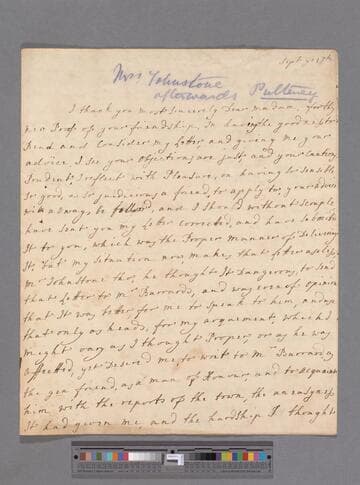 Sept ye 17th
Mrs Johnstone
afterwards Pulteney
I thank you most sincerely Dear madam, for this
new Proof of your friendship, In haveing the goodness to
Read and Consider my Letter and giveing me your
advice I see your objections are Just, and your caution,
Prudent I reflect with Pleasure, on having so sensible
so good, and so judicious a friend, to apply to, your advice
will always, be followd, and I shou'd without scruple
have sent you my Letter corrected, and have submitted
It to you, which was the Proper manner of Delivering
It, but my situation now makes that Letter useless
Mr Johnstone tho, he thought It Dangerous, to send
that Letter to Mr Barnards, and was even of opinion
that It was better for me to speak to him, and use
that only as heads, for my arguement, which I
might vary as I thought Proper, or as he was
affected, yet Desired me to write to Mr Barnards,
the gen friend, as a man of Honour, and to acquaint
him with the reports of the town, the uneasyness
It had given me, and the hardship I thought